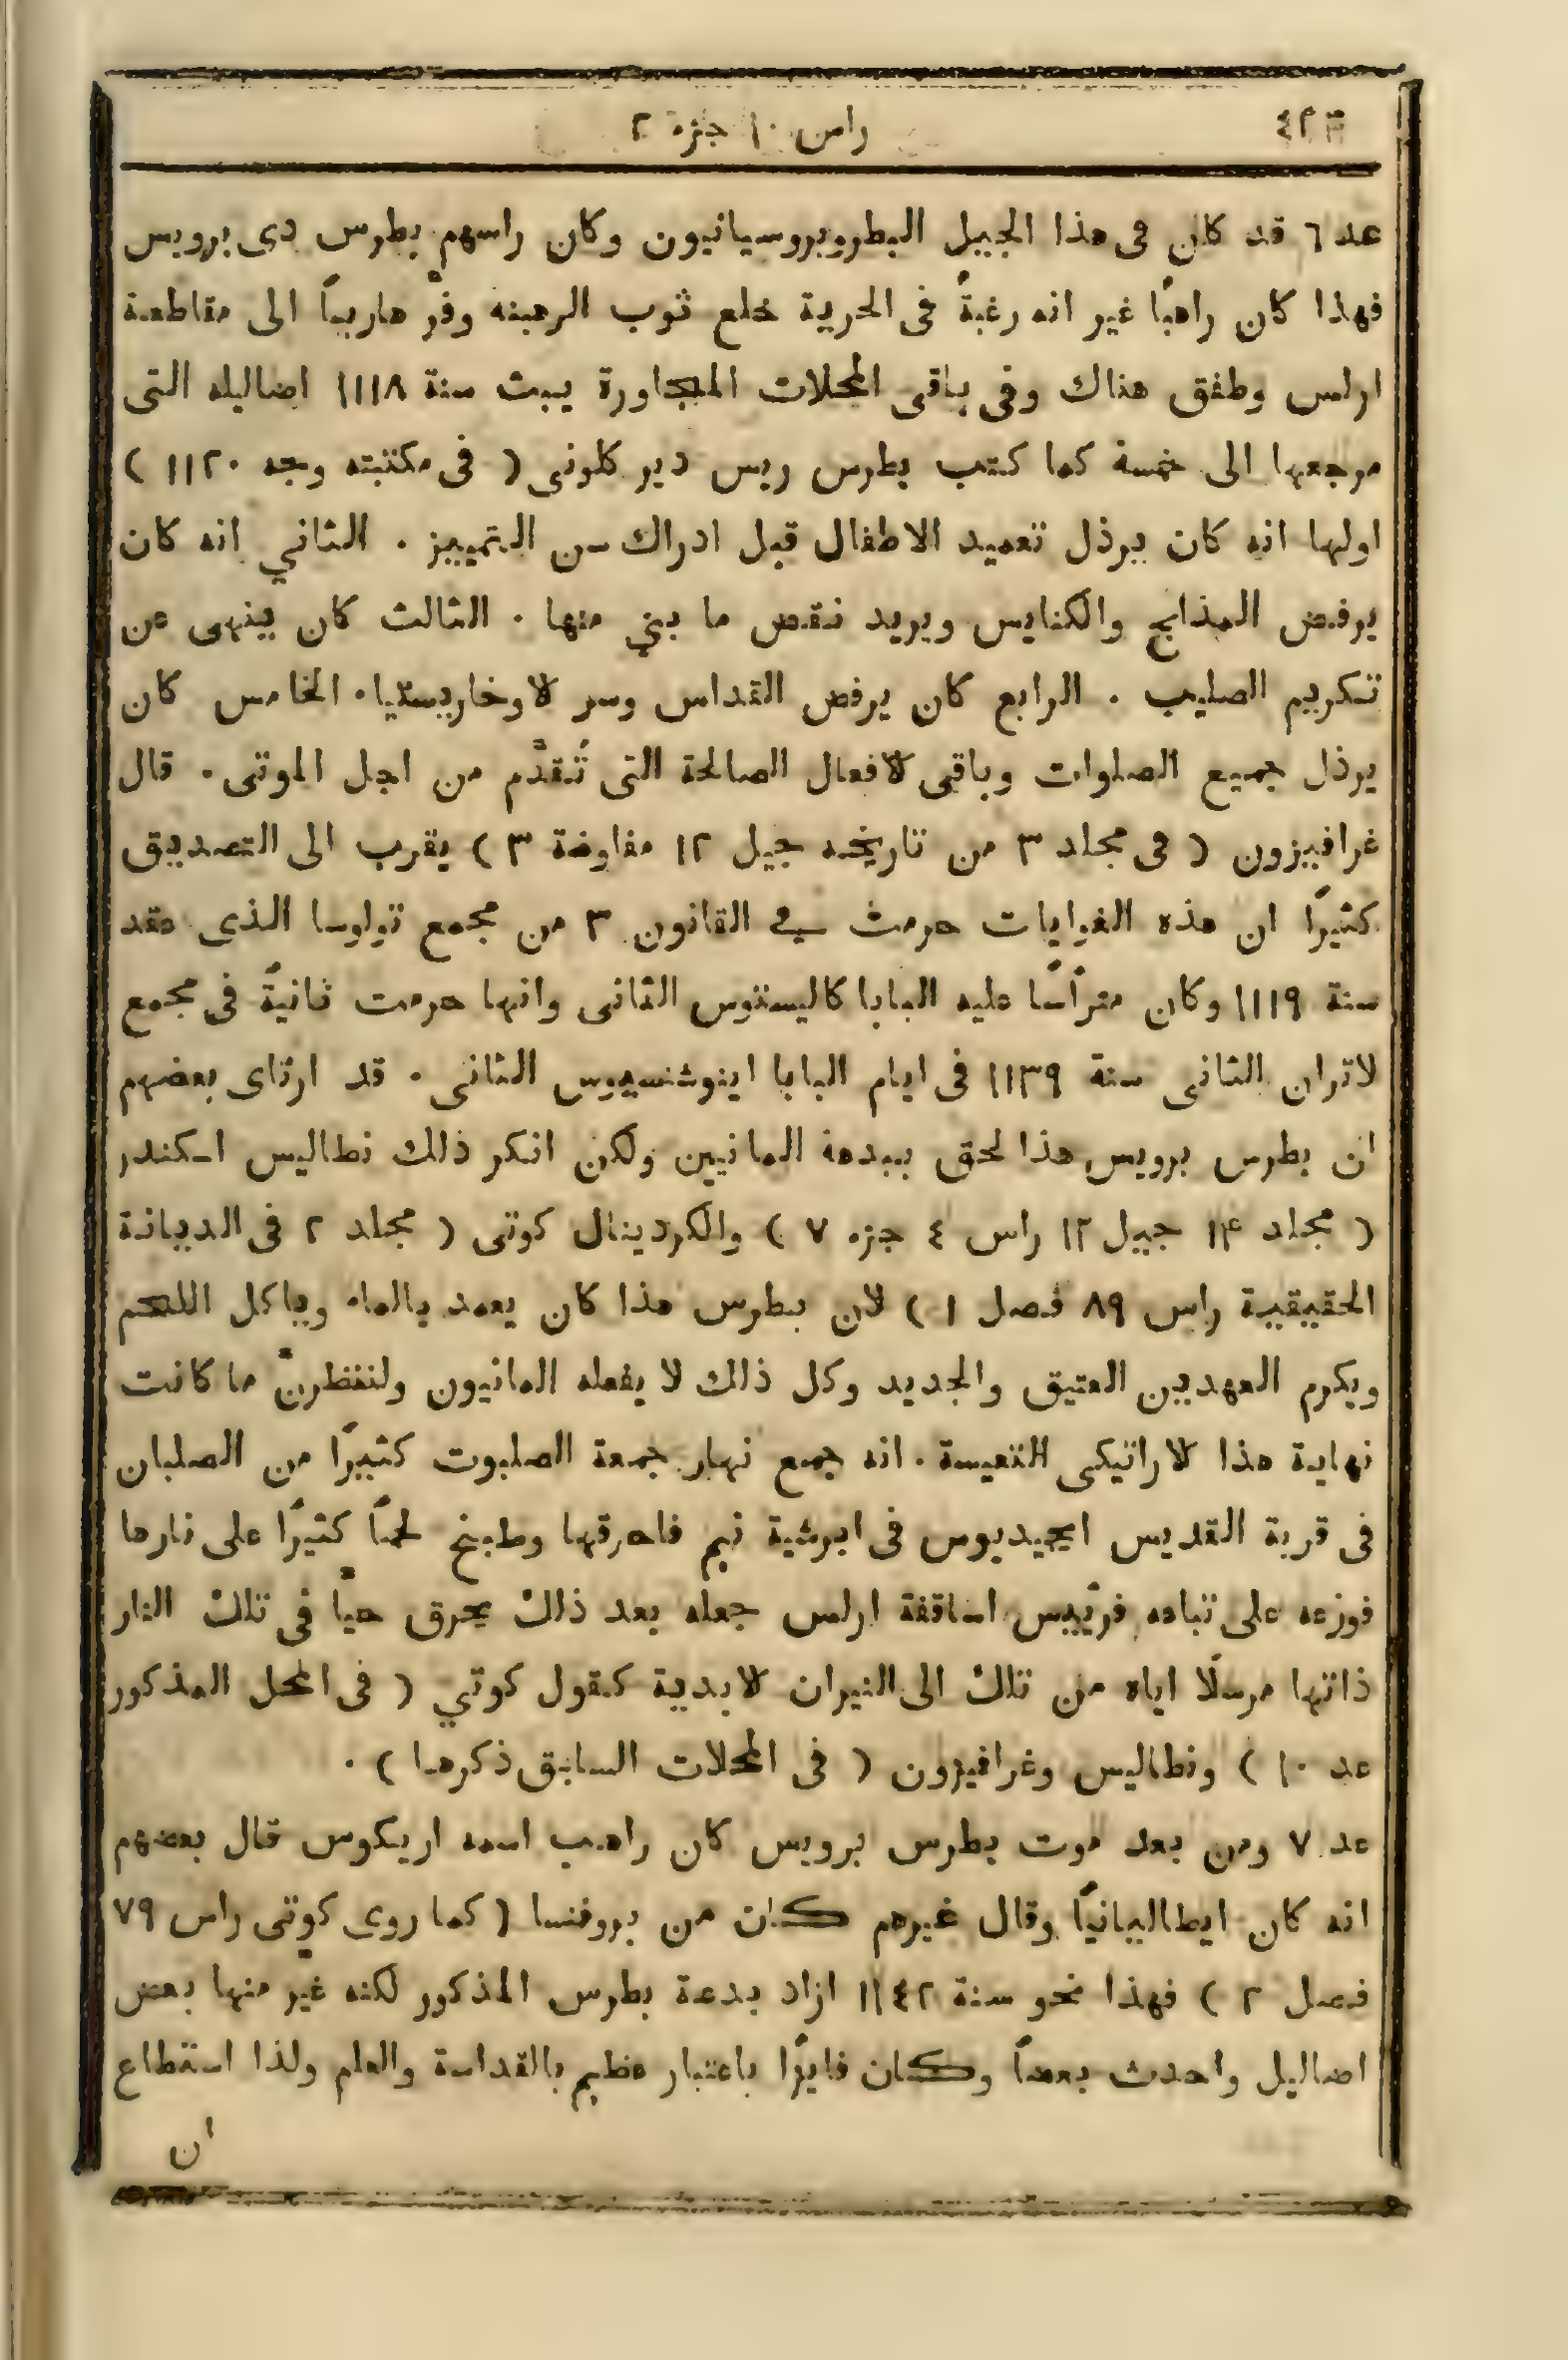 راس ١٠ جزء ٢
عد ٦ قد كان فى هذا الجيل البطروبروسيانيون وكان راسهم بطرس دى برويس
فهذا كان راهبًا غير انه رغبةً فى الحرية خلع ثوب الرهبنه وفرّ هاربًا الى مقاطعة
ارلس وطفق هناك وفى باقى المحلات المجاورة يبث سنة ١١١٨ اضاليله التى
مرجعها الى خمسة كما كتب بطرس ريس دير كلونى ( فى مكتبته وجه ١١٢٠ )
اولها انه كان يرذل تعميد الاطفال قبل ادراك سن التمييز . الثاني انه كان
يرفض المذابح والكنايس ويريد نقض ما بني منها . الثالث كان ينهى عن
تكريم الصليب . الرابع كان يرفض القداس وسر الاوخاريستيا . الخامس كان
يرذل جميع الصلوات وباقى الافعال الصالحة التى تُقدَّم من اجل الموتى . قال
غرافيزون ( فى مجلد ٣ من تاريخه جيل ١٢ مفاوضة ٣ ) يقرب الى التصديق
كثيرًا ان هذه الغوايات حرمت في القانون ٣ من مجمع تولوسا الذى عقد
سنة ١١١٩ وكان متراسًا عليه البابا كاليستوس الثانى وانها حرمت ثانيةً فى مجمع
لاتران الثانى سنة ١١٣٩ فى ايام البابا اينوشنسيوس الثانى . قد ارتاى بعضهم
ان بطرس برويس هذا لحق ببدعة المانيين ولكن انكر ذلك نطاليس اسكندر
( مجلد ١٤ جيل ١٢ راس ٤ جزء ٧ ) والكردينال كوتى ( مجلد ٢ فى الديانة
الحقيقية راس ٨٩ فصل ١ ) لان بطرس هذا كان يعمد بالماء وياكل اللحم
ويكرم العهدين العتيق والجديد وكل ذلك لا يفعله المانيون ولننظرنّ ما كانت
نهاية هذا الاراتيكى التعيسة . انه جمع نهار جمعة الصلبوت كثيرًا من الصلبان
فى قرية القديس ايجيديوس فى ابرشية نيم فاحرقها وطبخ لحمًا كثيرًا على نارها
فوزعه على تباعه فريّيس اساقفة ارلس جعله بعد ذلك يحرق حيًّا فى تلك النار
ذاتها مرسلًا اياه من تلك الى النيران الابدية كقول كوتي ( فى المحل المذكور
عد ١٠ ) ونطاليس وغرافيزون ( فى المحلات السابق ذكرها ) .
عد ٧ ومن بعد موت بطرس برويس كان راهب اسمه اريكوس قال بعضهم
انه كان ايطاليانيًا وقال غيرهم كان من بروفنسا ( كما روى كوتى راس ٧٩
فصل ٢ ) فهذا نحو سنة ١١٤٢ ازاد بدعة بطرس المذكور لكنه غيّر منها بعض
اضاليل واحدث بعضًا وكان فايزًا باعتبار عظيم بالقداسة والعلم ولذا استطاع
ان